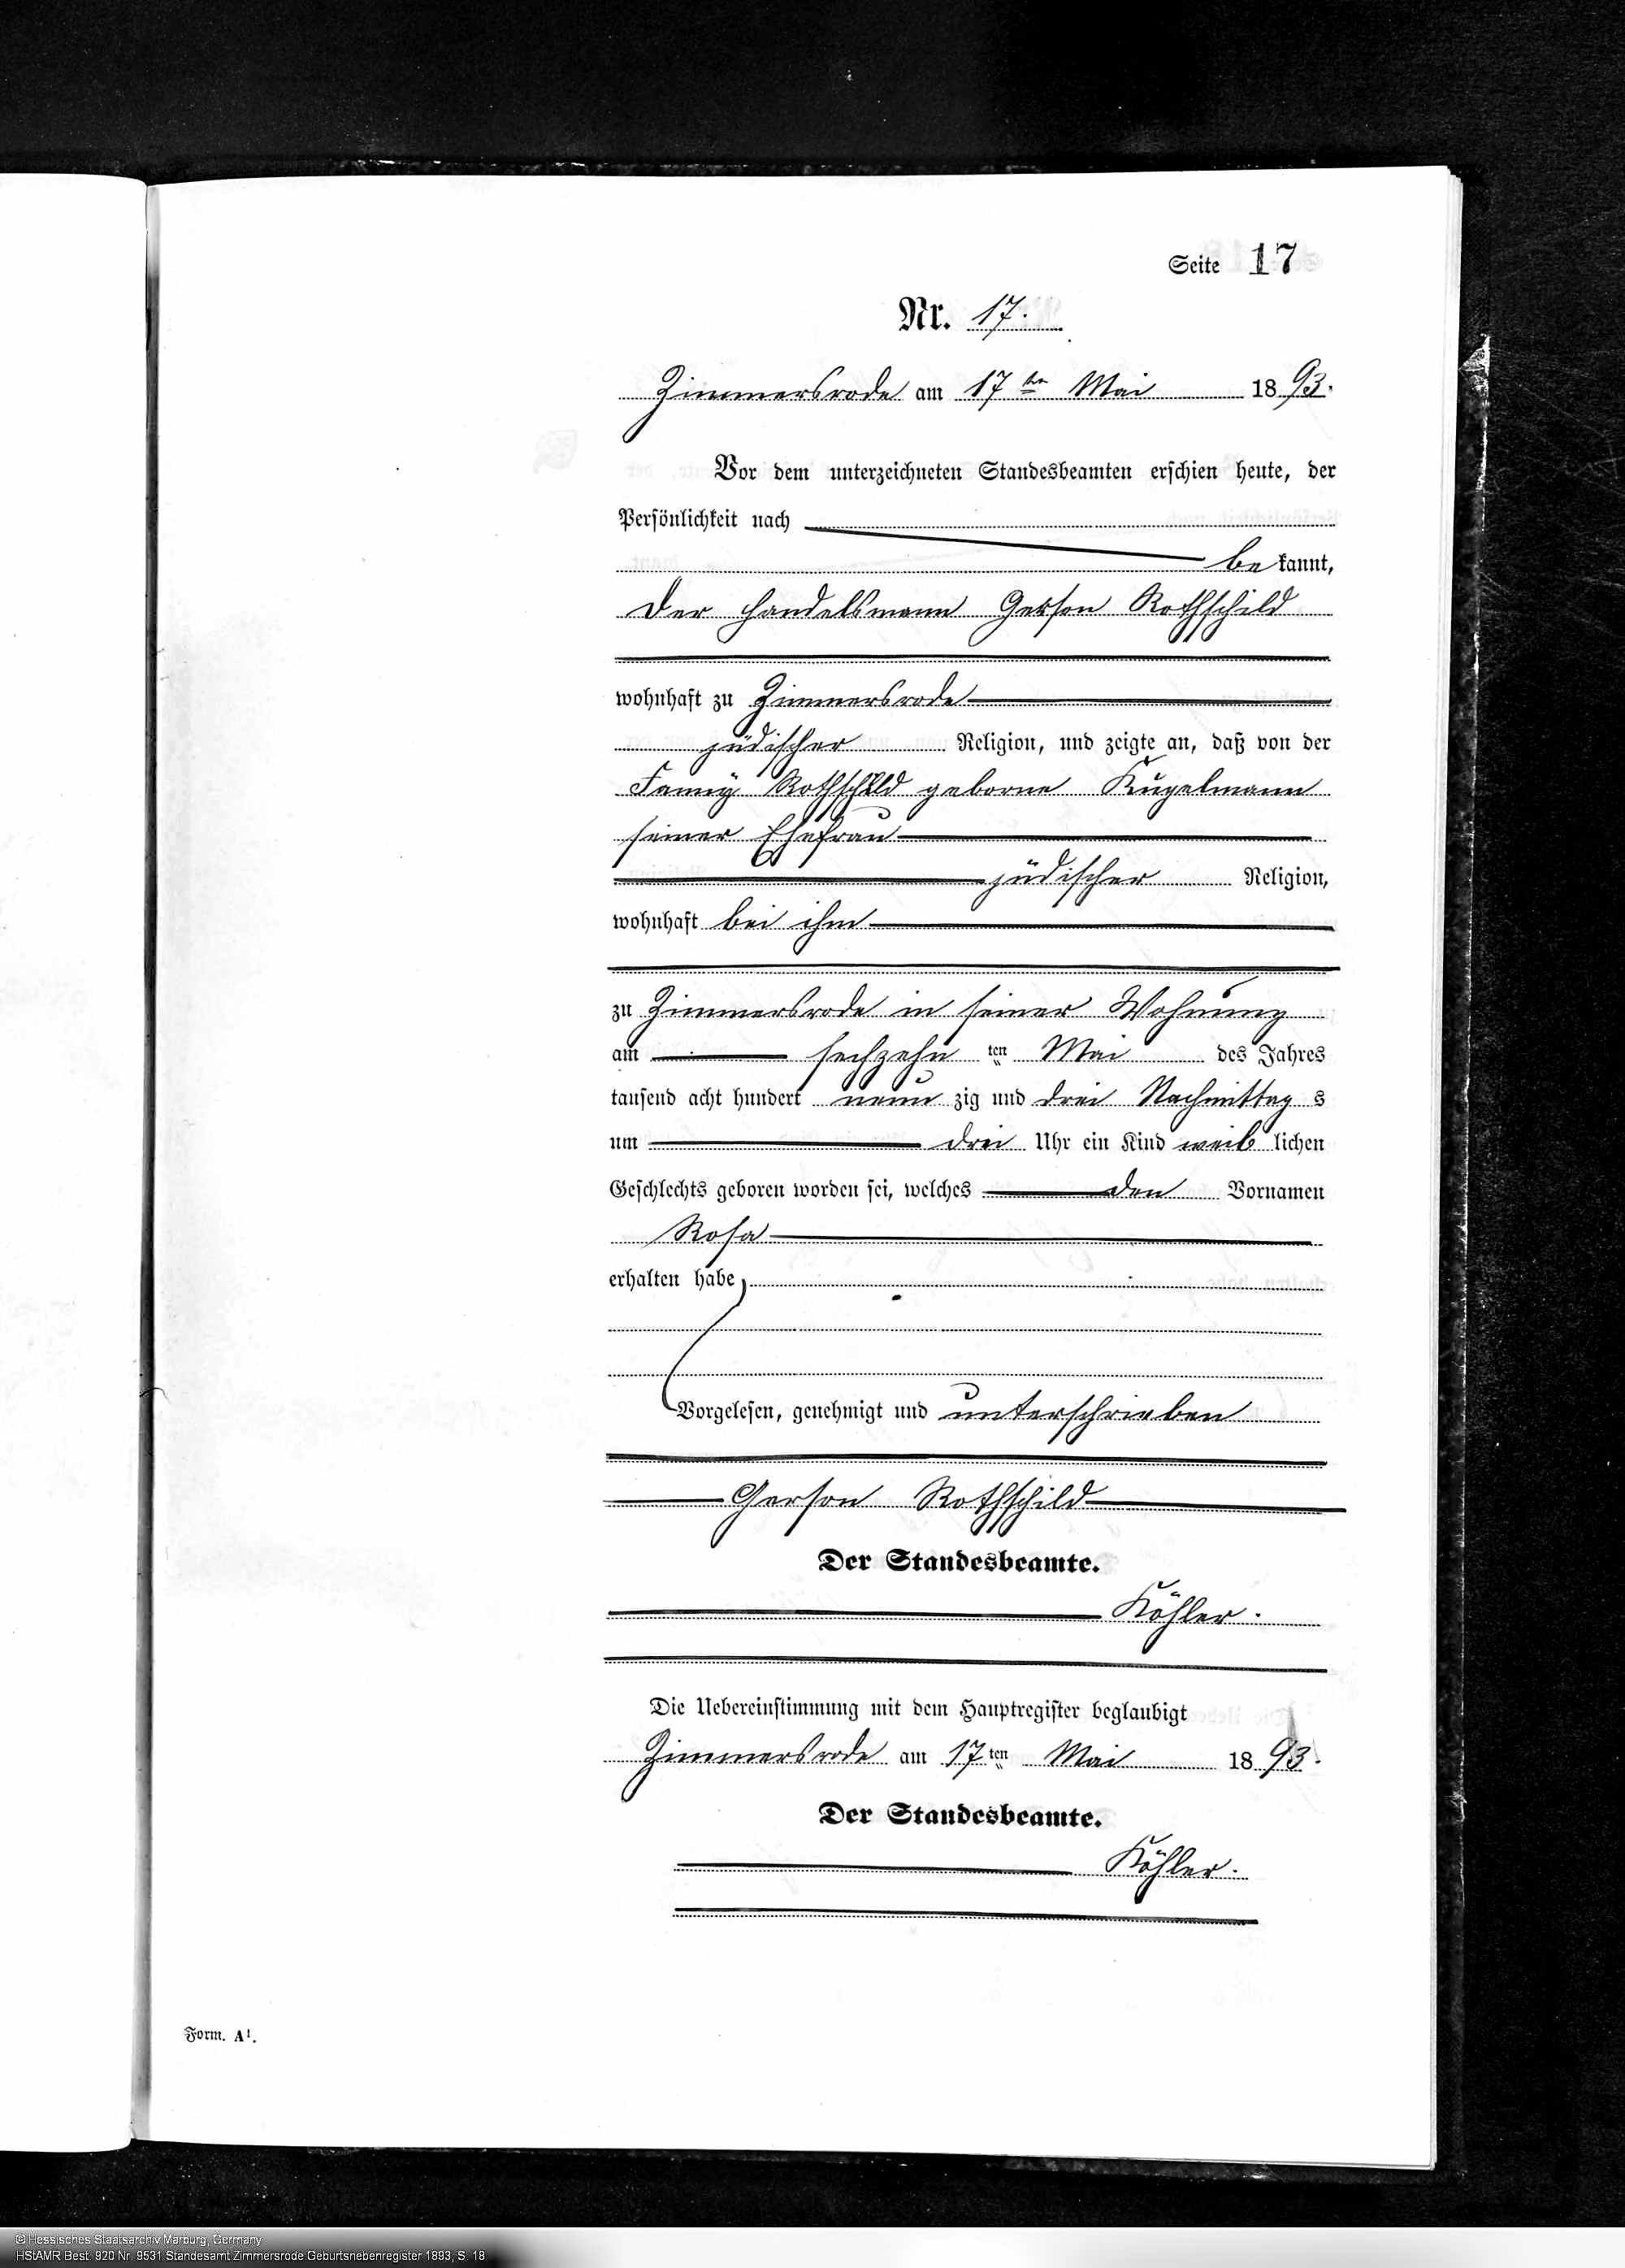 Seite 17
Nr. 17.
Zimmersrode am 17ten Mai 1893.
Vor dem unterzeichneten Standesbeamten erschien heute, der
Persönlichkeit nach
bekannt,
der Handelsmann Gerson Rothschild
wohnhaft zu Zimmersrode
jüdischer Religion, und zeigte an, daß von der
Fanny Rothschild geborne Kugelmann
seiner Ehefrau
jüdischer Religion,
wohnhaft bei ihm
zu Zimmersrode in seiner Wohnung
am sechzehnten Mai des Jahres
tausend acht hundert neunzig und drei Nachmittags
um drei Uhr ein Kind weiblichen
Geschlechts geboren worden sei, welches den Vornamen
Rosa
erhalten habe,
Vorgelesen, genehmigt und unterschrieben
Gerson Rothschild
Der Standesbeamte.
Köhler.
Die Uebereinstimmung mit dem Hauptregister beglaubigt
Zimmersrode am 17ten Mai 1893.
Der Standesbeamte.
Köhler.
Form. A1.
© Hessisches Staatsarchiv Marburg, Germany
HStAMR Best. 920 Nr. 9531 Standesamt Zimmersrode Geburtsnebenregister 1893, S. 18